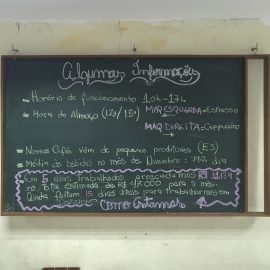 Algumas Informações
- Horário de funcionamento 10h-17h
- Hora do Almoço (12h/15h)
MAQ ESQUERDA = Espresso
MAQ DIREITA = Cappuccino
- Nossos Cafés vêm de pequenos produtores (ES)
- Média de bebidas no mês de Novembro:
dia
Em 5 dias trabalhados arrecadamos R$
no. Total estimado de R$ para o mês.
Ainda faltam 15 dias úteis para trabalharmos em
Dezembro
Como Estamos